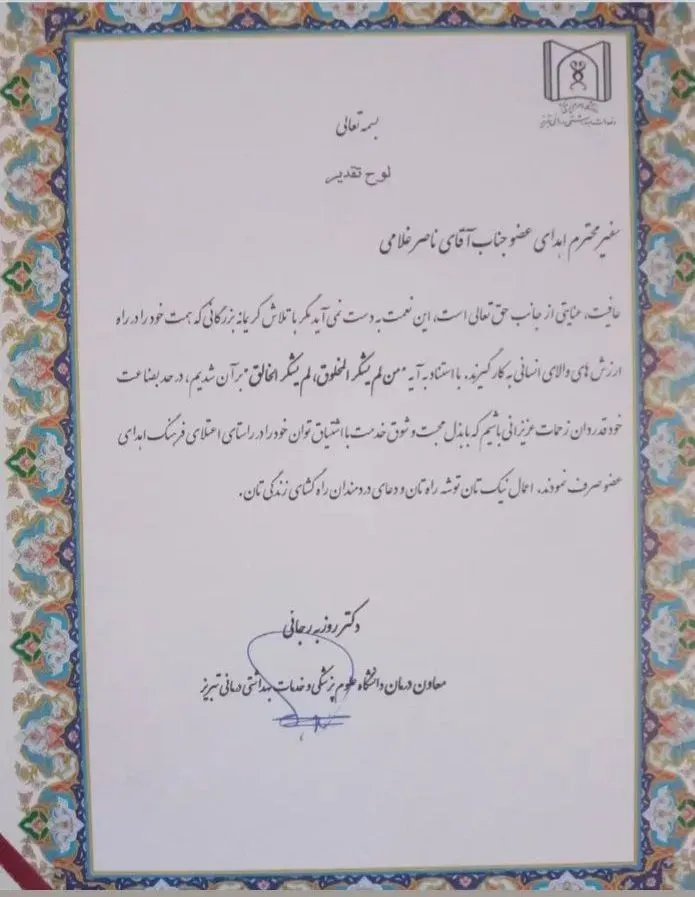 دانشگاه علوم پزشکی
و خدمات بهداشتی درمانی تبریز
بسمه تعالی
لوح تقدیر
سفیر محترم اهدای عضو جناب آقای ناصر غلامی
عافیت، عنایتی از جانب حق تعالی است، این نعمت به دست نمی آید مگر با تلاش کریمانه بزرگانی که همت خود را در راه
ارزش های والای انسانی به کار گیرند. با استناد به آیه "من لم یشکر المخلوق، لم یشکر الخالق" بر آن شدیم، در حد بضاعت
خود قدردان زحمات عزیزانی باشیم که با بذل محبت و شوق خدمت با اشتیاق توان خود را در راستای اعتلای فرهنگ اهدای
عضو صرف نمودند. اعمال نیک تان توشه راه تان و دعای دردمندان راه گشای زندگی تان.
دکتر روزبه رجائی
معاون درمان دانشگاه علوم پزشکی و خدمات بهداشتی درمانی تبریز